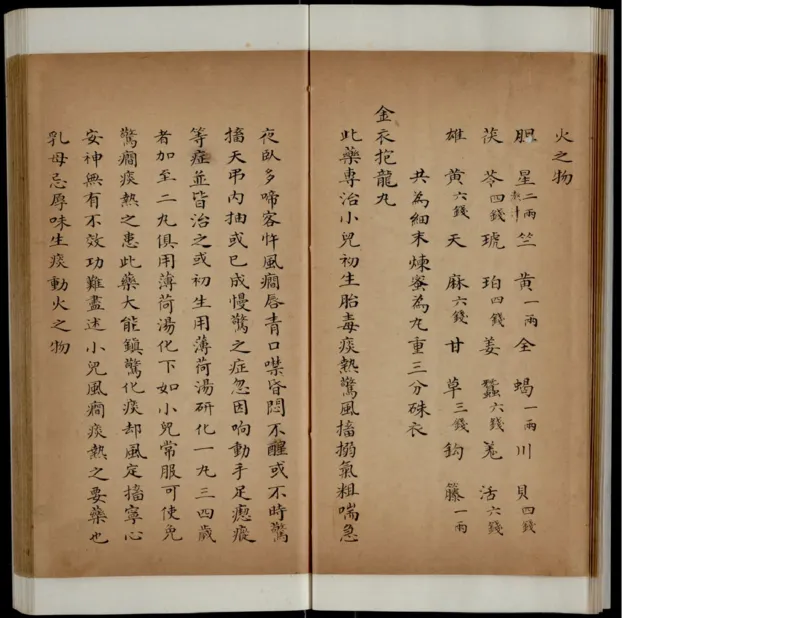 火之物
胆星二兩竺黃一兩全蝎一兩川貝四錢
茯苓四錢琥珀四錢姜蠶六錢羌活六錢
雄黃六錢天麻六錢甘草三錢鈎籐一兩
共為細末煉蜜為丸重三分硃衣
金衣抱龍丸
此藥專治小兒初生胎毒痰熱驚風搐搦氣粗喘急
夜臥多啼客忤風癇唇青口噤昏悶不醒或不時驚
搐天弔內抽或已成慢驚之症忽因响動手足瘛瘲
等症並皆治之或初生用薄荷湯研化一丸三四歲
者加至二丸俱用薄荷湯化下如小兒常服可使免
驚癇痰熱之患此藥大能鎮驚化痰却風定搐寧心
安神無有不效功難盡述小兒風癇痰熱之要藥也
乳母忌厚味生痰動火之物